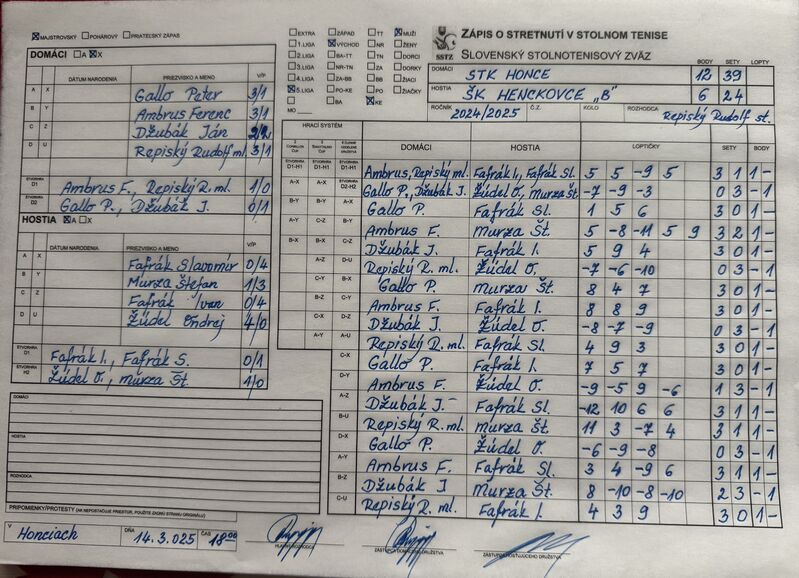 MAJSTROVSKÝ POHÁROVÝ PRIATEĽSKÝ ZÁPAS
DOMÁCI A X
DÁTUM NARODENIA PRIEZVISKO A MENO V/P
A X Gallo Peter 3/1
B Y Ambrus Ferenc 3/1
C Z Džubák Ján 2/2
D U Repiský Rudolf ml. 3/1
ŠTVORHRA D1 Ambrus F., Repiský R. ml. 1/0
ŠTVORHRA D2 Gallo P., Džubák J. 0/1
HOSTIA A X
DÁTUM NARODENIA PRIEZVISKO A MENO V/P
A X Fafrák Slavomír 0/4
B Y Murza Štefan 1/3
C Z Fafrák Ivan 0/4
D U Žúdel Ondrej 4/0
ŠTVORHRA D1 Fafrák I., Fafrák S. 0/1
ŠTVORHRA H2 Žúdel O., Murza Št. 1/0
DOMÁCI
HOSTIA
ROZHODCA
PRIPOMIENKY/PROTESTY (AK NEPOSTAČUJE PRIESTOR, POUŽITE ZADNÚ STRANU ORIGINÁLU)
V Honciach DŇA 14.3.025 ČAS 18 00
HLAVNÝ ROZHODCA
ZÁSTUPCA DOMÁCEHO DRUŽSTVA
ZÁSTUPCA HOSŤUJÚCEHO DRUŽSTVA
EXTRA ZÁPAD TT MUŽI
1. LIGA VÝCHOD NR ŽENY
2. LIGA BA-TT TN DORCI
3. LIGA NR-TN ZA DORKY
4. LIGA ZA-BB BB ŽIACI
5. LIGA PO-KE PO ŽIAČKY
BA KE
MO
SSTZ
ZÁPIS O STRETNUTÍ V STOLNOM TENISE
SLOVENSKÝ STOLNOTENISOVÝ ZVÄZ
BODY SETY LOPTY
DOMÁCI STK HONCE 12 39
HOSTIA ŠK HENCKOVCE „B" 6 24
ROČNÍK 2024/2025 Č.Z. KOLO ROZHODCA Repiský Rudolf st.
HRACÍ SYSTÉM DOMÁCI HOSTIA LOPTIČKY SETY BODY
D1-H1 D1-H1 D1-H1 Ambrus, Repiský ml. Fafrák I., Fafrák Sl. 5 5 -9 5 3 1 1 -
A-X A-X D2-H2 Gallo P., Džubák J. Žúdel O, Murza Št -7 -9 -3 0 3 - 1
B-Y B-Y A-X Gallo P. Fafrák Sl. 1 5 6 3 0 1 -
A-Y C-Z B-Y Ambrus F. Murza Št. 5 -8 -11 5 9 3 2 1 -
B-X B-X C-Z Džubák J. Fafrák I. 5 9 4 3 0 1 -
A-Z D-U Repiský R. ml. Žúdel O. -7 -6 -10 0 3 - 1
C-Y B-X Gallo P. Murza Št. 8 4 7 3 0 1 -
B-Z C-Y Ambrus F. Fafrák I. 8 8 9 3 0 1 -
C-X D-Z Džubák J. Žúdel O. -8 -7 -9 0 3 - 1
A-Y A-U Repiský R. ml. Fafrák Sl. 4 9 3 3 0 1 -
C-X Gallo P. Fafrák I. 7 5 7 3 0 1 -
D-Y Ambrus F. Žúdel O. -9 -5 9 -6 1 3 - 1
A-Z Džubák J. Fafrák Sl. -12 10 6 6 3 1 1 -
B-U Repiský R. ml. Murza Št. 11 3 -7 4 3 1 1 -
D-X Gallo P. Žúdel O. -6 -9 -8 0 3 - 1
A-Y Ambrus F. Fafrák Sl. 3 4 -9 6 3 1 1 -
B-Z Džubák J Murza Št. 8 -10 -8 -10 2 3 - 1
C-U Repiský R. ml. Fafrák I. 4 3 9 3 0 1 -